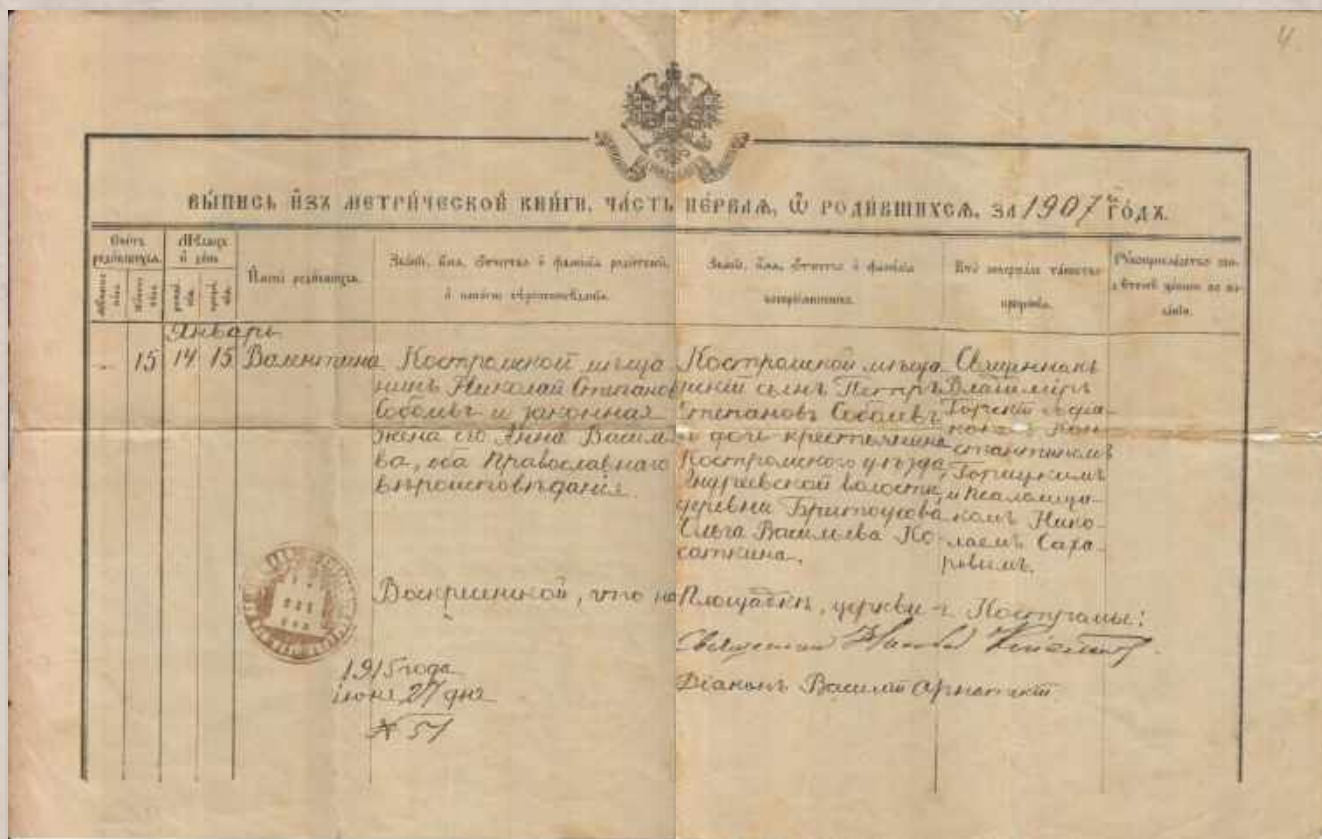 4.
ВЫПИСЬ ИЗЪ МЕТРИЧЕСКОЙ КНИГИ, ЧАСТЬ ПЕРВАЯ, Ѡ РОДИВШИХСЯ, ЗА 1907 ГОДЪ.
Счетъ родившихся.
Мѣсяцъ и день
Имена родившихся.
Званіе, имя, отчество и фамилія родителей,
и какого вѣроисповѣданія.
Званіе, имя, отчество и фамилія
воспріемниковъ.
Кто совершалъ таинство
крещенія.
Январь
15 14 15 Валентина
Костромской мѣща
нинъ Николай Степанов
Соболевъ и законная
жена его Анна Василь
ва, оба Православнаго
вѣроисповѣданія.
Костромской мѣща
нскій сынъ Петръ
Степановъ Соболевъ
и дочь крестьянина
Костромского уѣзда,
Андреевской волости,
деревни
Ольга Васильева Ко
саткина.
Священникъ
Владиміръ
Горскій с діа-
кономъ Кон-
стантиномъ
Горицкимъ
и псаломщи-
комъ Нико-
лаемъ Саха-
ровымъ.
Воскресенской, что на Площадкѣ, церкви г. Костромы:
Священник
Діаконъ Василій
1915 года
іюня 27 дня
№ 51